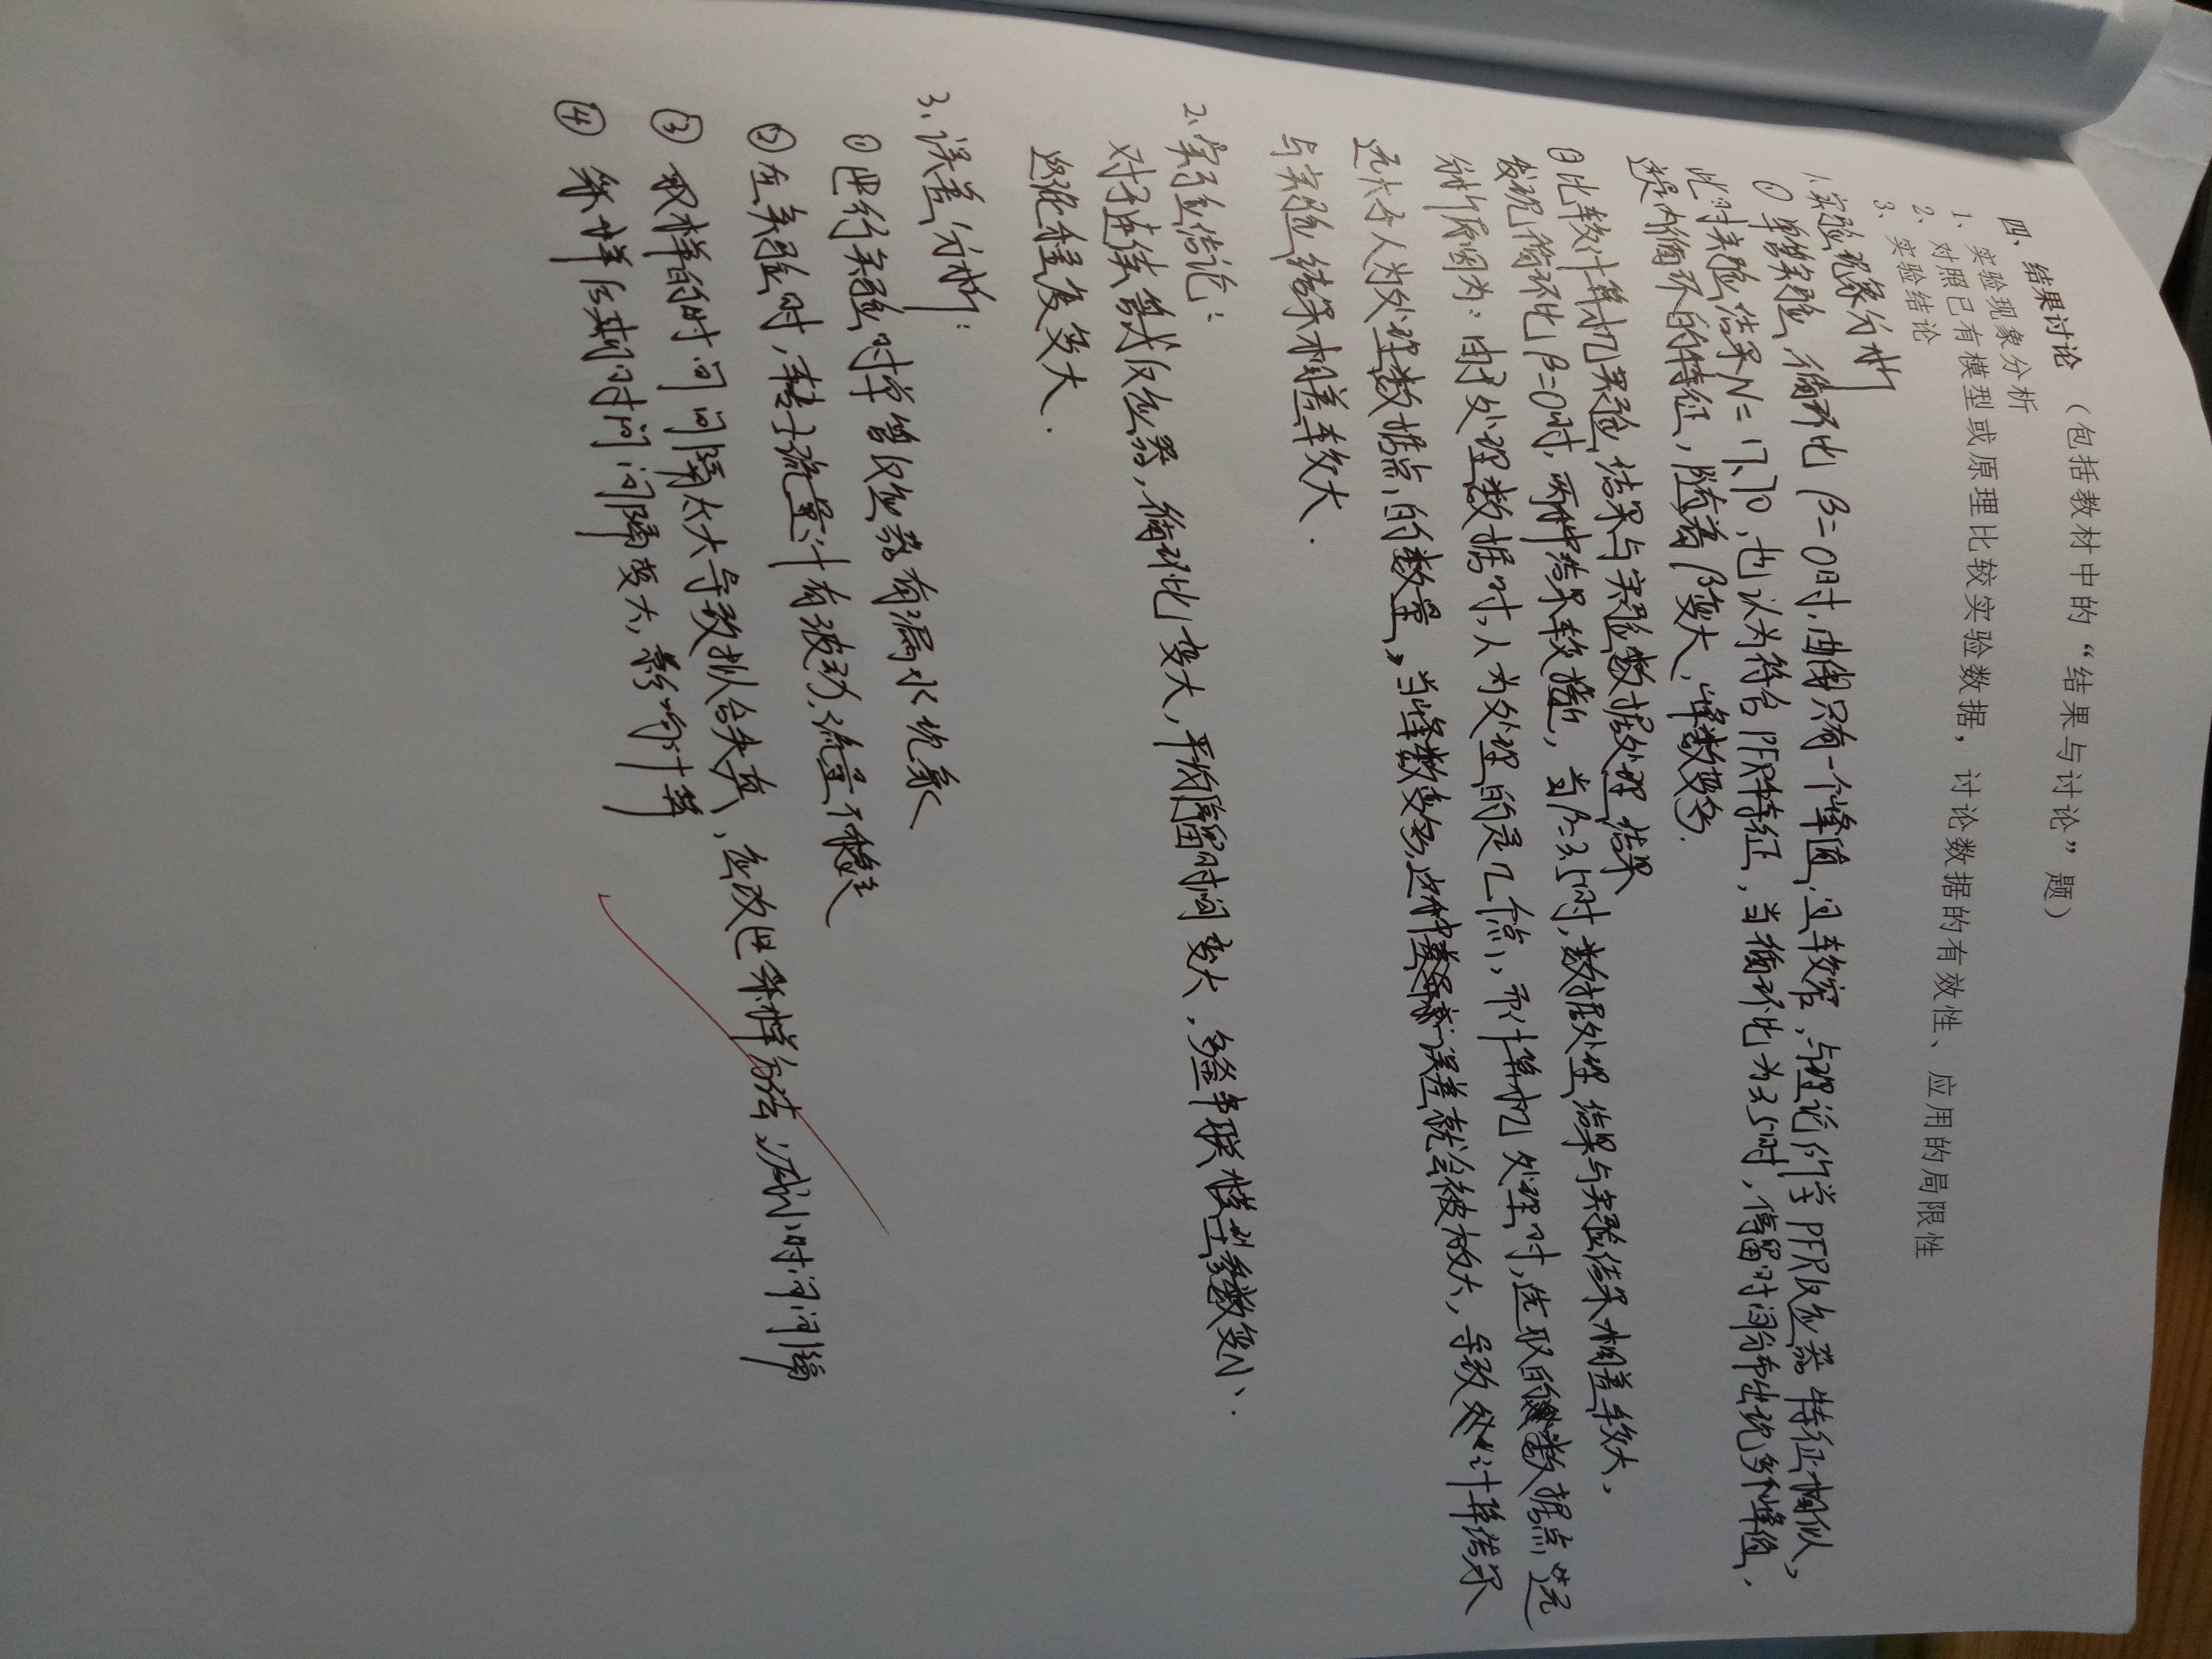 四、结果讨论（包括教材中的“结果与讨论”题）
1、实验现象分析
2、对照已有模型或原理比较实验数据，讨论数据的有效性、应用的局限性
3、实验结论
1.实验现象分析
① 单管实验，循环比 β=0时，曲线只有一个峰值，且较窄，与理论所学PFR反应器特征相似，
此时实验结果N=17.70，也认为符合PFR特征，当循环比为3.5时，停留时间分布出现多个峰值，
提内循环的特征，随着β变大，峰数变多.
② 比较计算机实验结果与实验数据处理结果
发现循环比β=0时，两种结果较接近，当β=3.5时，数据处理结果与实验结果相差较大，
分析原因为：由于处理数据时，人为处理的是几个点，而计算机处理时，选取的数据点远
远大于人为处理数据点的数量，当峰数变多，这种误差就会被放大，导致计算结果
与实验结果相差较大.
2、实验结论：
对于连续管式反应器，循环比变大，平均停留时间变大，多釜串联模型参数变小、
返混程度变大.
3、误差分析：
① 进行实验时单管反应器有漏水现象
② 在实验时，转子流量计有波动，流量不稳定
③ 取样的时间间隔太大导致拟合失真，应改进采样方法，减小时间间隔
④ 采样后期时间间隔变大，影响计算